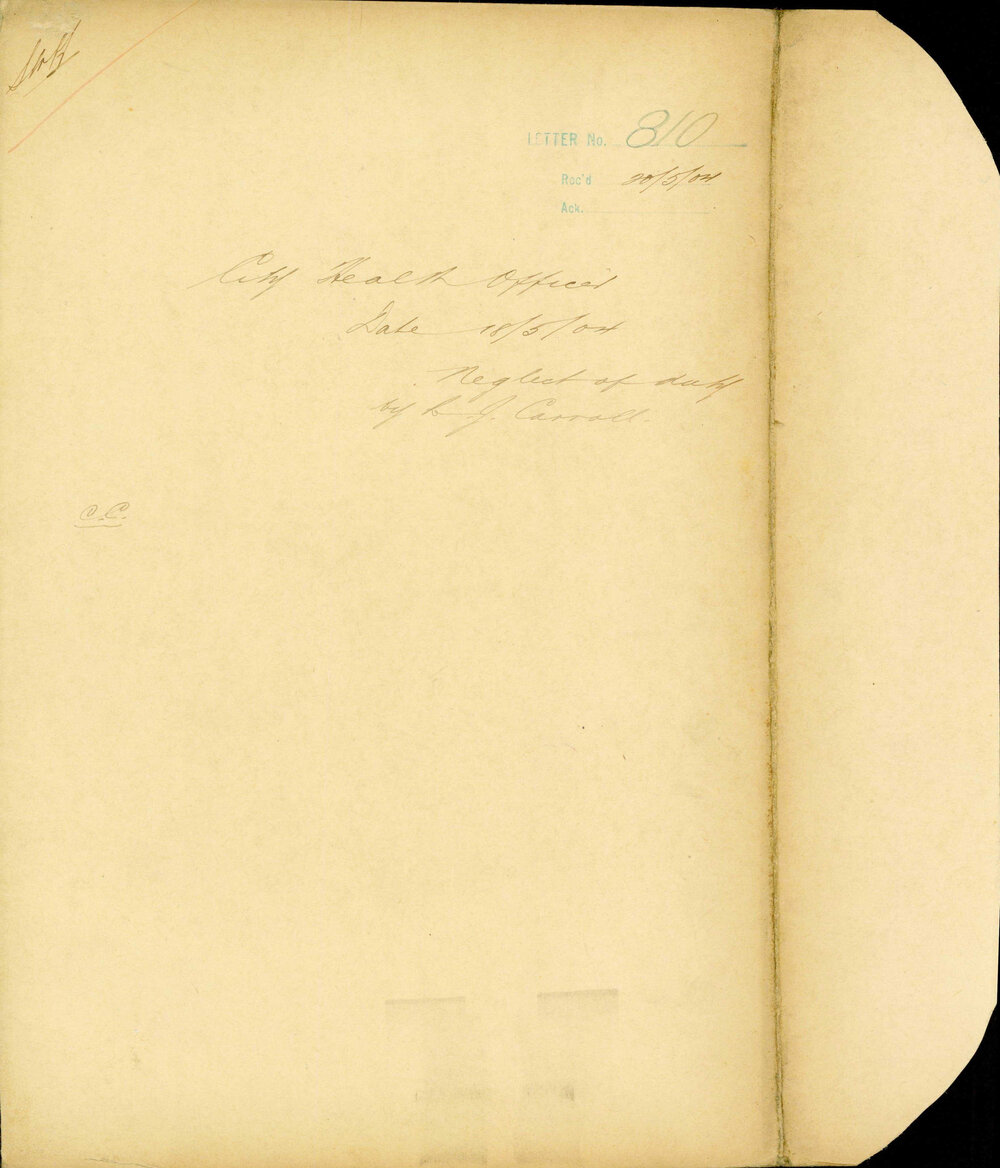 LETTER No. 810
Rec'd 20/5/04
Ack.
City Health Officer
Date 18/5/04
Neglect of duty
by L. J. Carroll.
C.C.